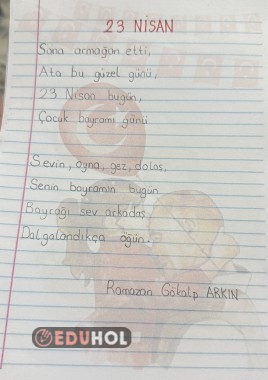 23 NİSAN
Sana armağan etti,
Ata bu güzel günü,
23 Nisan bugün,
Çocuk bayramı günü
Sevin, oyna, gez, dolaş,
Senin bayramın bugün
Bayrağı sev arkadaş
Dalgalandıkça öğün.
Ramazan Gökalp ARKIN
EDUHOL